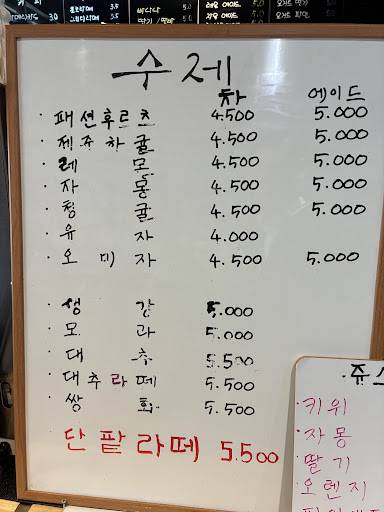 커피
3.0
3.5
5.0
바나나 5.0
레몬에이드 5.0
딸기
자몽에이드 5.0
수제
차 에이드
· 패션후르츠 4.500 5.000
· 제주하귤 4.500 5.000
· 레몬 4.500 5.000
· 자몽 4.500 5.000
· 청귤 4.500 5.000
· 유자 4.000
· 오미자 4.500 5.000
· 생강 5.000
· 모과 5.000
· 대추 5.500
· 대추라떼 5.500
· 쌍화 5.500
단팥라떼 5.500
쥬스
· 키위
· 자몽
· 딸기
· 오렌지